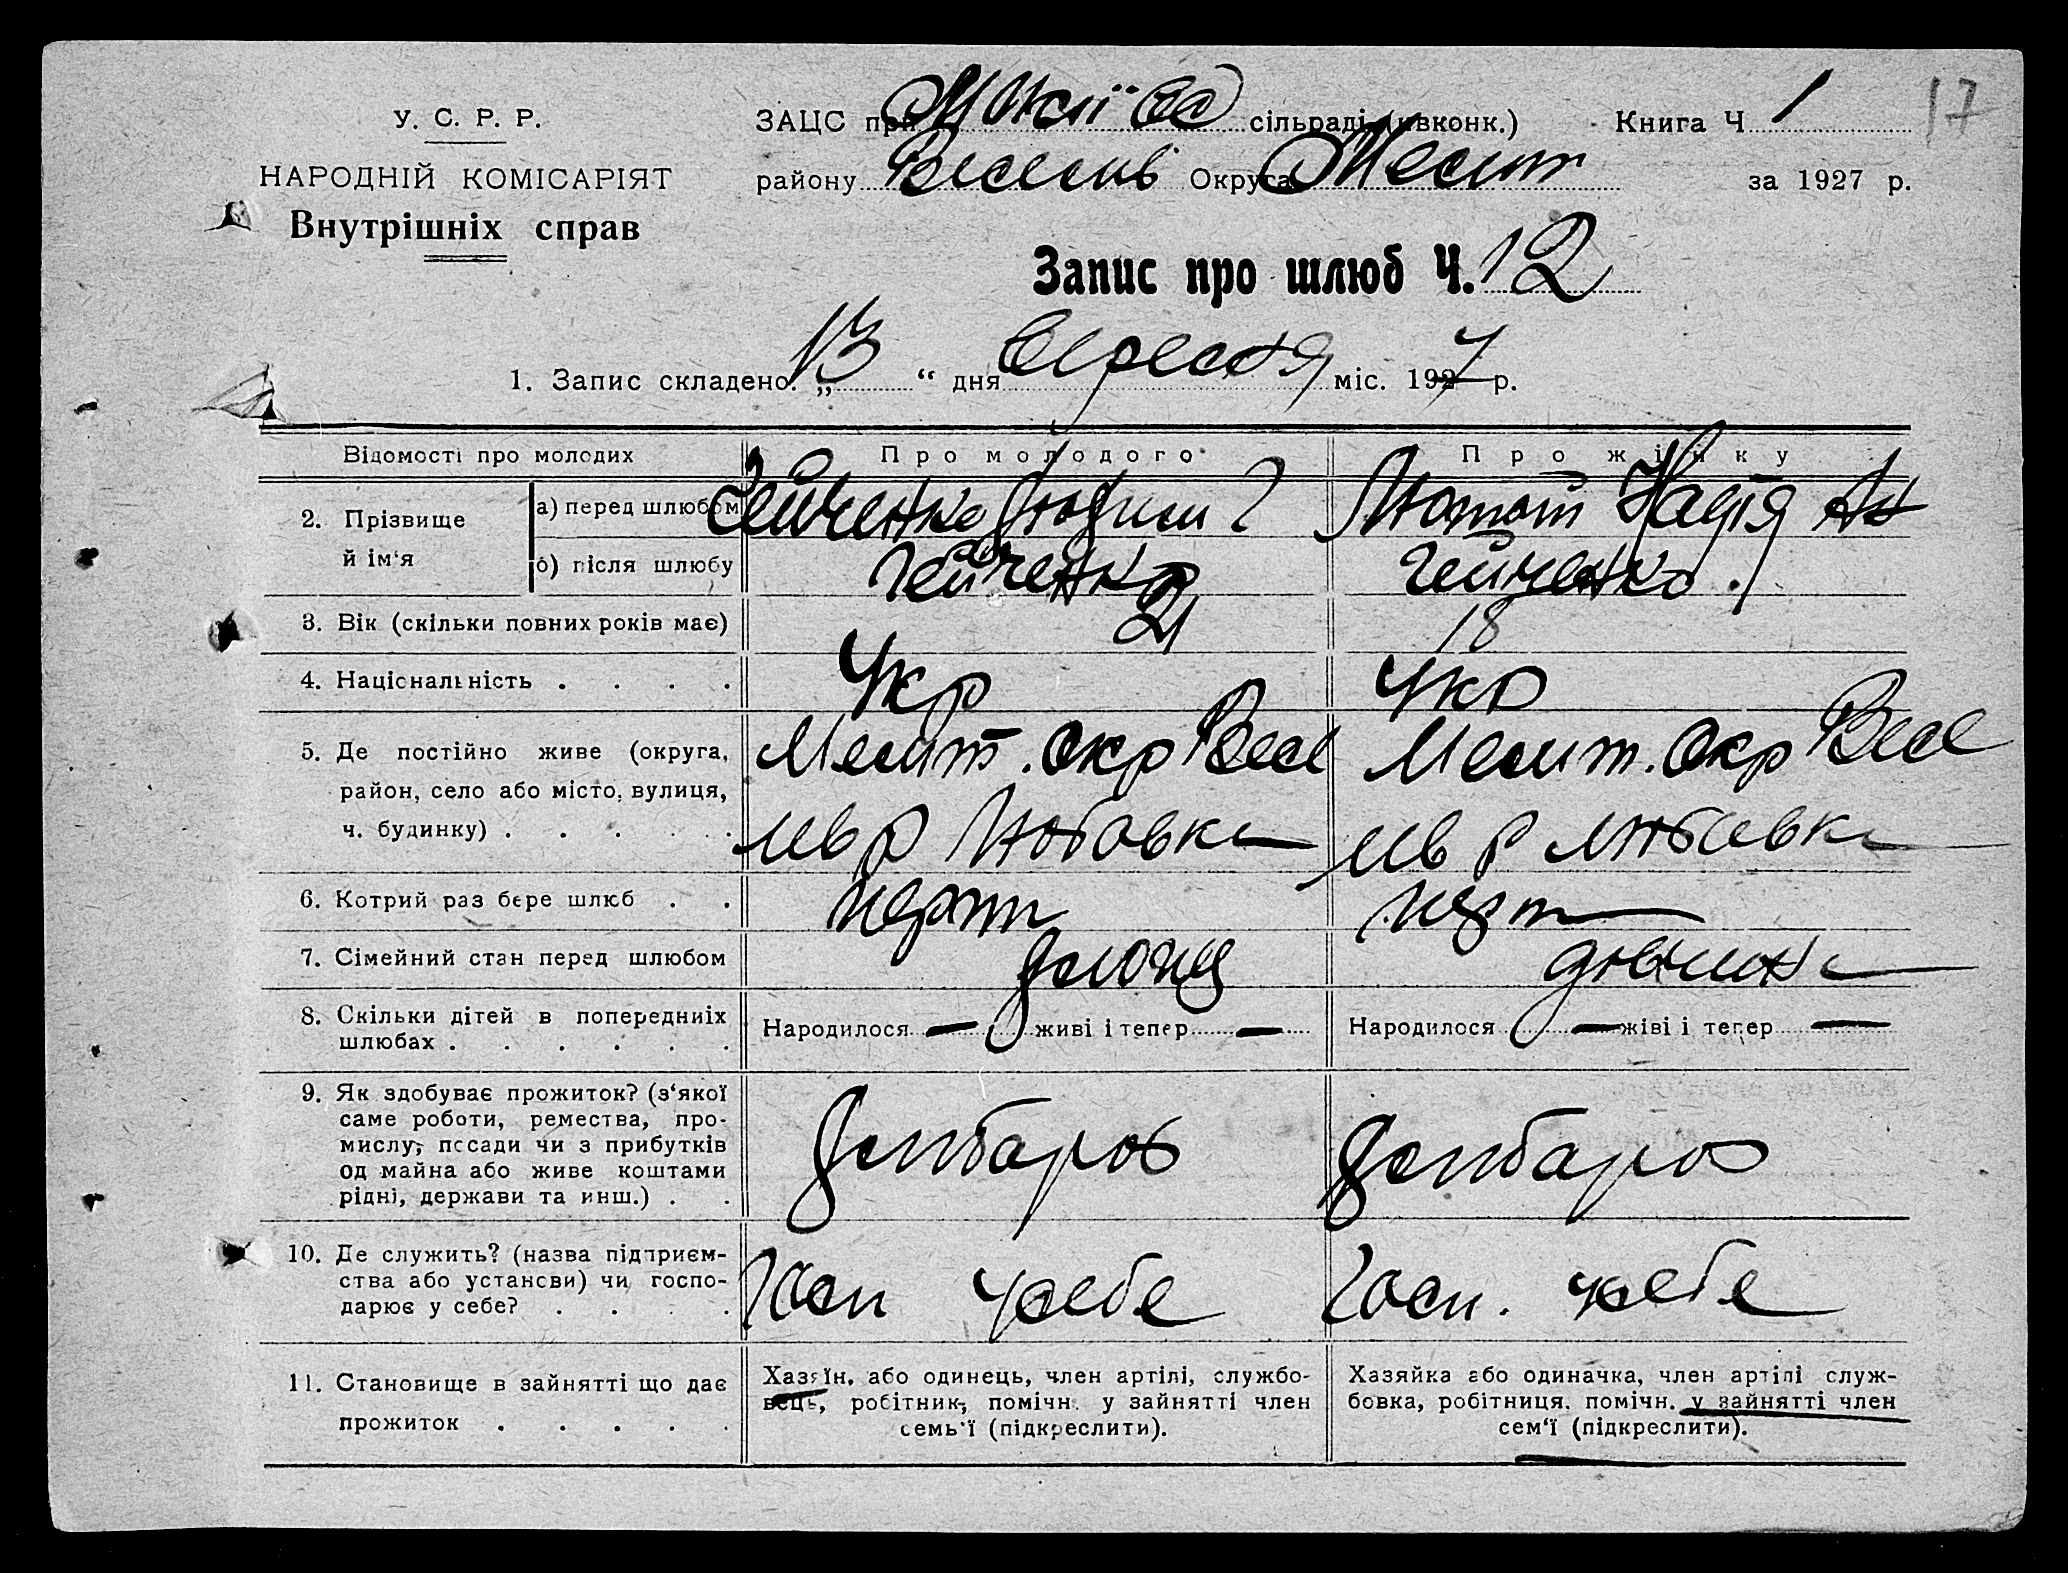 17
У. С. Р. Р.
НАРОДНІЙ КОМІСАРІЯТ
Внутрішніх справ
ЗАЦС при сільраді (ивконк.) Книга Ч 1
району Веселів Округа Меліт за 1927 р.
Запис про шлюб Ч. 12
1. Запис складено: „ 13 “ дня Вересня міс. 1927 р.
Відомості про молодих Про молодого Про жінку
2. Прізвище й ім‘я
а) перед шлюбом Гейченко Лютий Надія Ан
б) після шлюбу Гейченко Гейченко
3. Вік (скільки повних років має) 21 18
4. Національність . . . . Укр Укр
5. Де постійно живе (округа, Меліт. окр Весе Меліт. окр Весе
район, село або місто, вулиця, лів р Любавка лів р Любавка
ч. будинку) . . . . .
6. Котрий раз бере шлюб . . перш перш
7. Сімейний стан перед шлюбом дівчина
8. Скільки дітей в попередніх Народилося — живі і тепер — Народилося — жіві і тепер —
шлюбах . . . . . .
9. Як здобуває прожиток? (з‘якої
саме роботи, ремества, про-
мислу, посади чи з прибутків хлібароб хлібароб
од майна або живе коштами
рідні, держави та инш.) . .
10. Де служить? (назва підприєм-
ства або установи) чи госпо- Госп у себе Госп. у себе
дарює у себе? . . . .
11. Становище в зайнятті що дає
прожиток . . . . .
Хазяїн, або одинець, член артілі, службо-
вець, робітник, помічн. у зайнятті член
семь‘ї (підкреслити).
Хазяйка або одиначка, член артілі служ-
бовка, робітниця, помічн. у зайнятті член
сем‘ї (підкреслити).